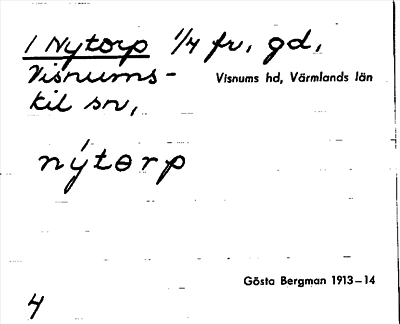 1 Nytorp 1/4 fr, gd,
Visnums-
kil sn,
Visnums hd, Värmlands län
nýtɵrp
Gösta Bergman 1913–14
4